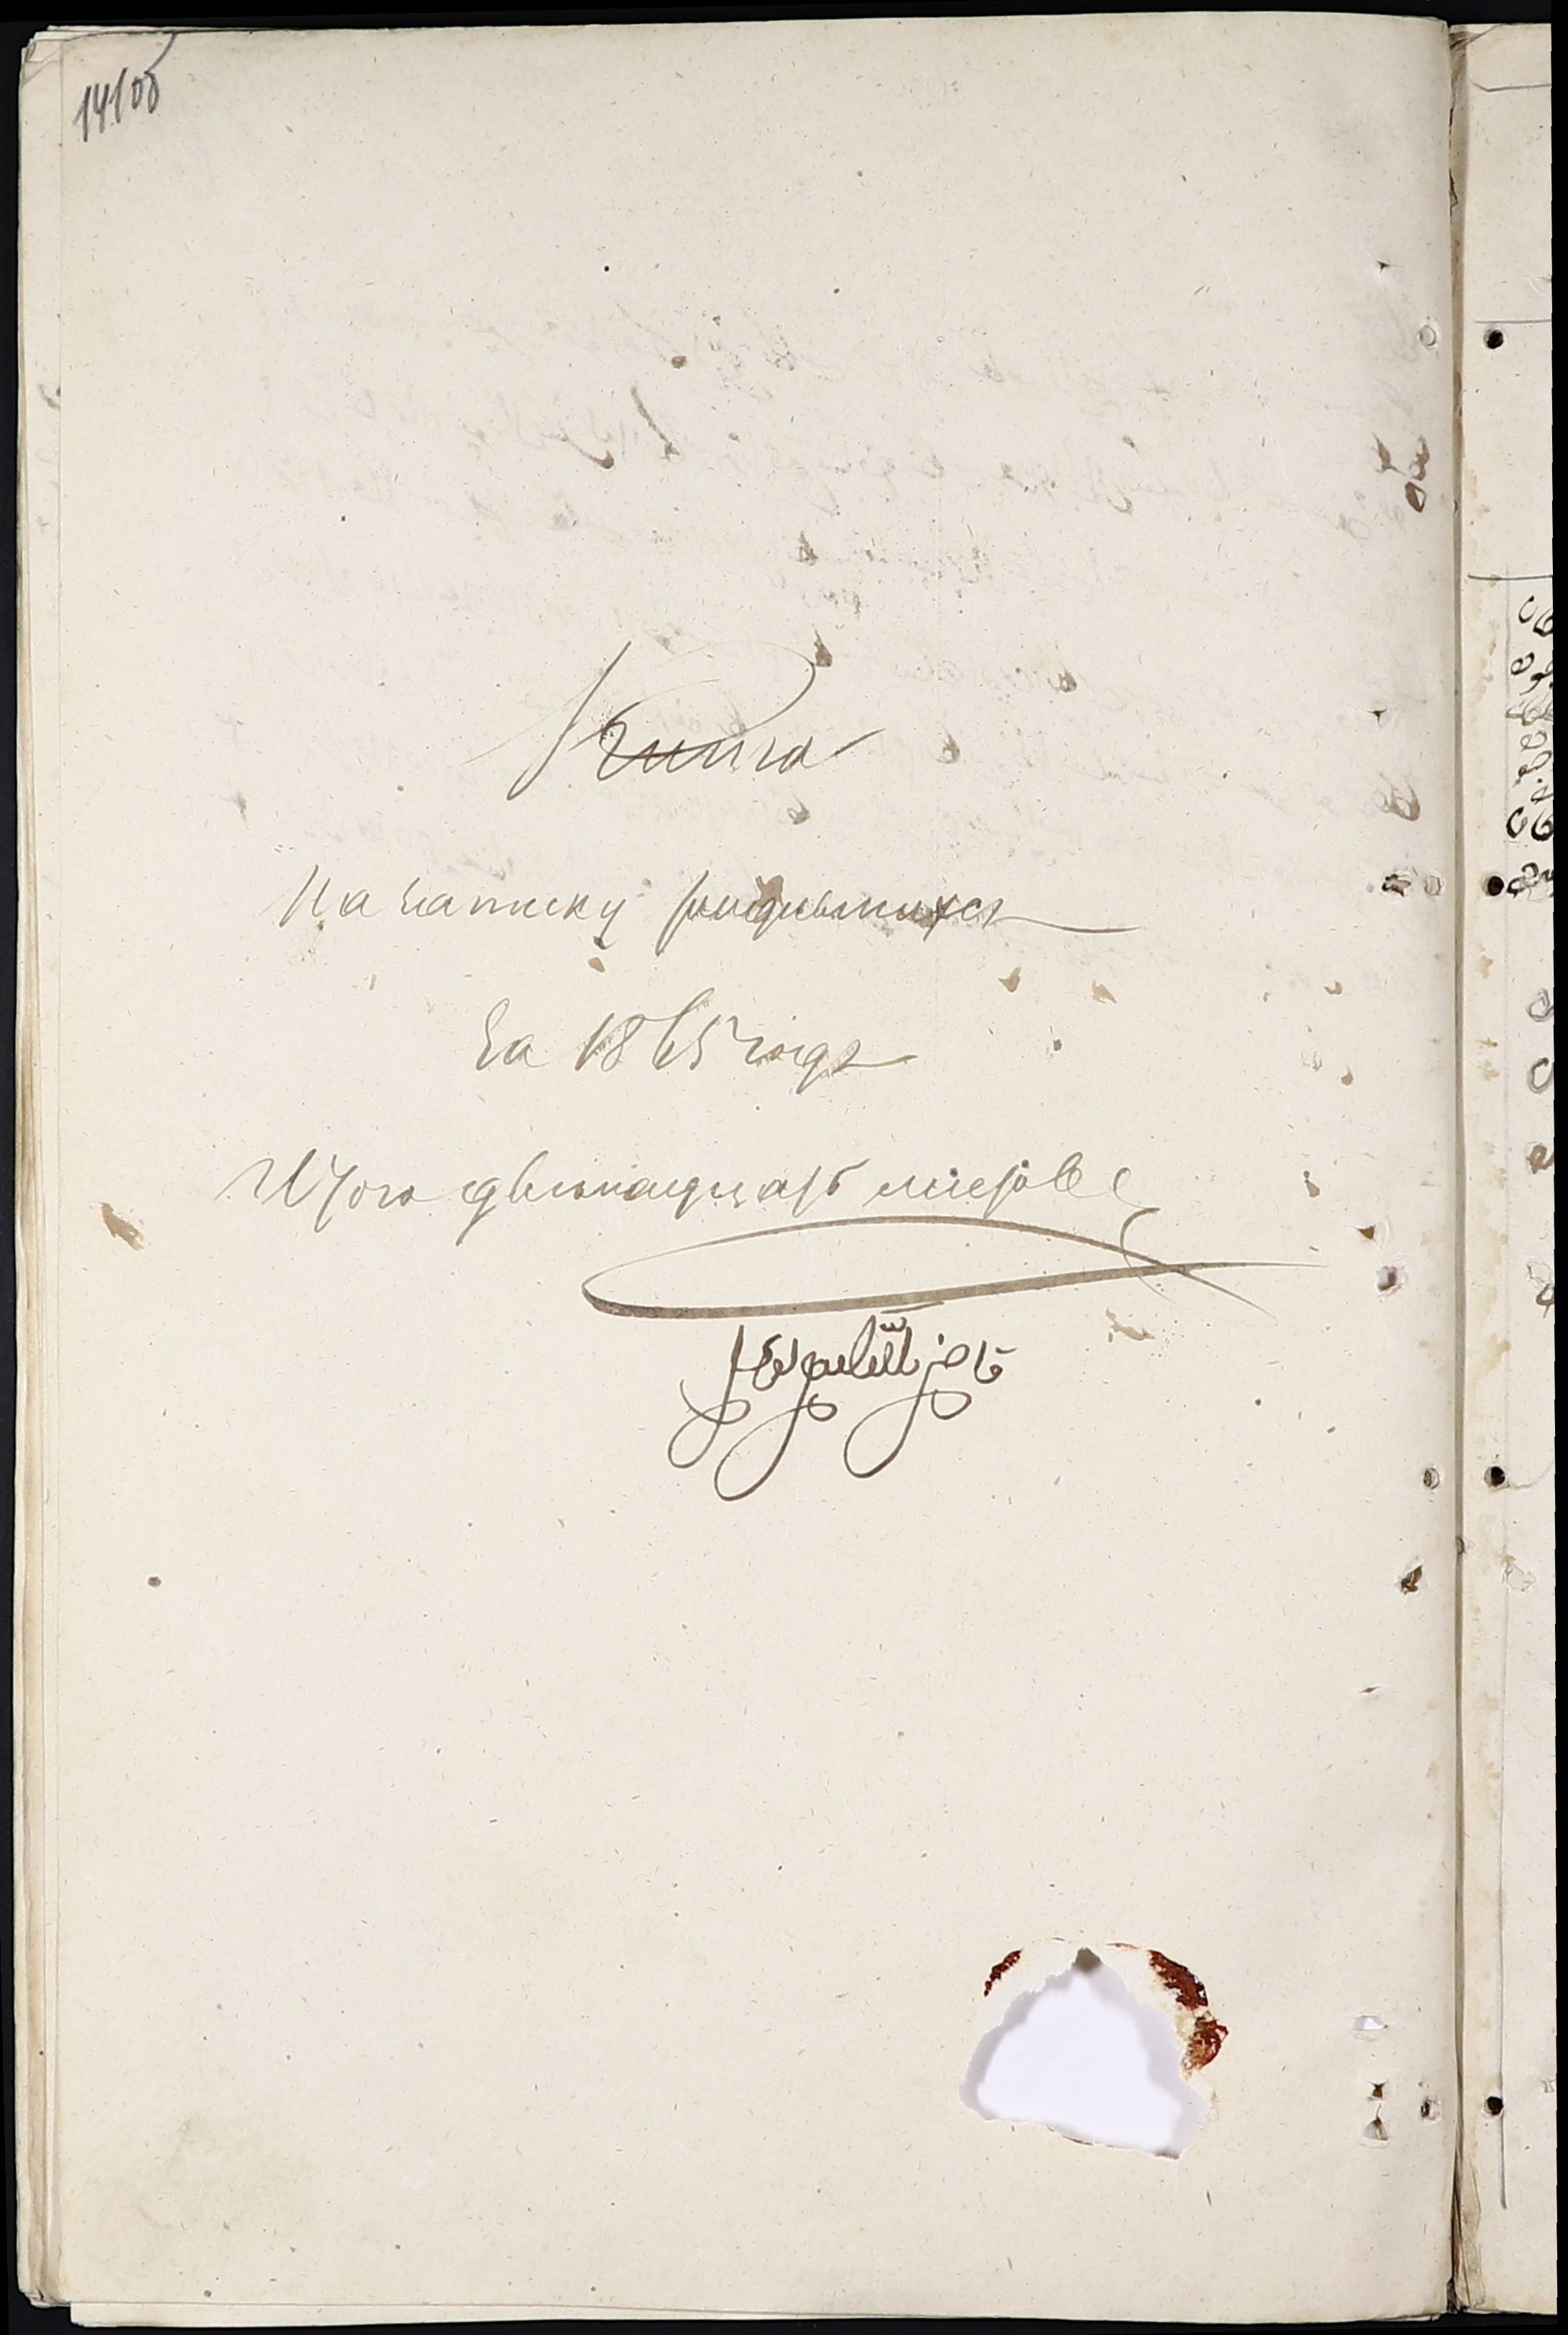 14/об
Книга
На записку родившихся
За 1865 годъ
Итого двенадцать листовъ
قاضی